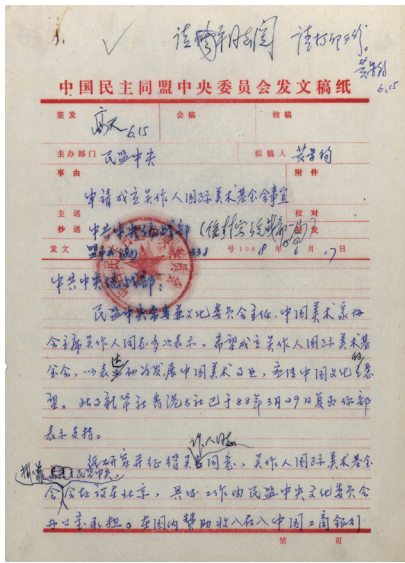 请 同志阅 请打印 份。
6.15
中国民主同盟中央委员会发文稿纸
签发 6.15 会稿 核稿
主办部门 民盟中央 拟稿人
事由 附件
申请成立吴作人国际美术基金会事宜
主送 校对
抄送 中共中央统战部
发文 号 1988年6月17日
中共中央统战部：
民盟中央常委兼文化委员会主任、中国美术家协
会主席吴作人同志多次表示，希望成立吴作人国际美术基
金会，以表达他的发展中国美术事业，宣传中国文化的愿
望。此事新华社香港分社已于88年3月29日复函你部
表示支持。
经研究并征得吴作人同志同意，吴作人国际美术基金
会 会址设在北京，具体工作由民盟中央文化委员会
办公室承担。在国内赞助收入存入中国工商银行
第 页